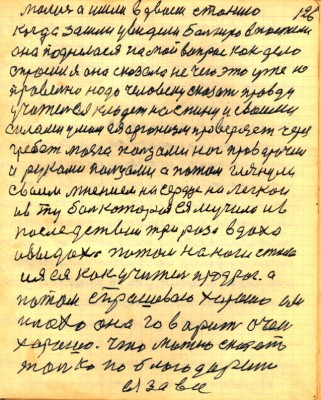 126
молила и шили вдвоем стоишо
когда зашли увидели больную в постели
она поднелася на мой вопрос как дело
спросил я она сказала не чего это уже не
правельно надо человеку сказать правду
учител я кладет на спину и своими
силами умом я организм проверяет чере
гребет мозга попами ног проводочки
и руками попами а потом глянула
своим мнением на сердце на легкои
и в ту бол которая ся мучило и в
последствии три раза вдохо
овыдохо потом на ноги стала
и я ся как учител продрог. а
потом спрашеваю хорошо ли
плохо она говорит очен
хорошо. Что можно сказать
толко по благодарит
ся за все